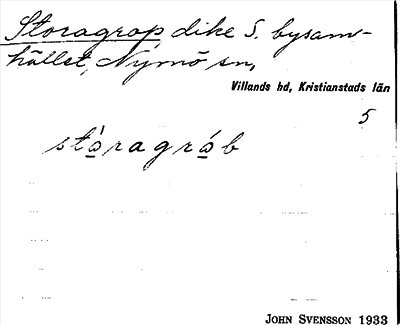 Storagrop, dike S. bysam-
hället, Nymö sn,
Villands hd, Kristianstads län
5
stòragráb
JOHN SVENSSON 1933